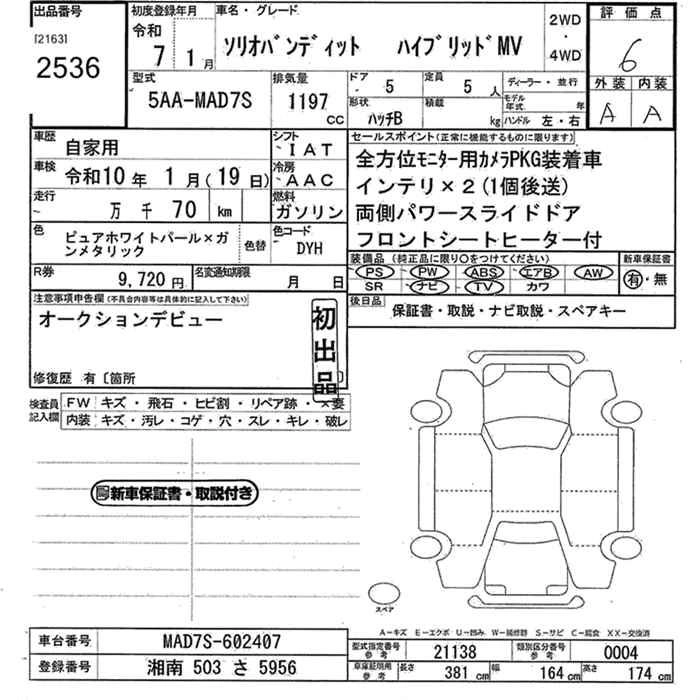 出品番号
[2163]
2536
初度登録年月
令和
7 1月
車名・グレード
ソリオバンディット ハイブリッドMV
2WD
・
4WD
評価点
6
外装 内装
A A
型式
5AA-MAD7S
排気量
1197 CC
ドア 5
定員 5 人
ディーラー・並行
形状 ハッチB
積載 kg
モデル年式 年
ハンドル 左・右
車歴 自家用
シフト IAT
車検 令和10年 1月(19日)
冷房 AAC
走行 万千70 km
燃料 ガソリン
色 ピュアホワイトパール×ガンメタリック
色替
色コード DYH
R券 9,720円
名変通知期限 月 日
セールスポイント(正常に機能するものに限ります)
全方位モニター用カメラPKG装着車
インテリ×2(1個後送)
両側パワースライドドア
フロントシートヒーター付
装備品(純正品に限り○をつけてください)
PS PW ABS エアB AW
SR ナビ TV カワ
新車保証書
有・無
後日品 保証書・取説・ナビ取説・スペアキー
注意事項申告欄(不具合内容等は具体的に記入して下さい)
オークションデビュー
初出品
修復歴 有〔箇所 〕
検査員記入欄
FW キズ・飛石・ヒビ割・リペア跡・×要
内装 キズ・汚レ・コゲ・穴・スレ・キレ・破レ
新車保証書・取説付き
スペア
A-キズ E-エクボ U-凹み W-補修跡 S-サビ C-腐食 XX-交換済
車台番号 MAD7S-602407
登録番号 湘南 503 さ 5956
型式指定番号 参考 21138
類別区分番号 参考 0004
車庫証明用 参考
長さ 381 cm
幅 164 cm
高さ 174 cm